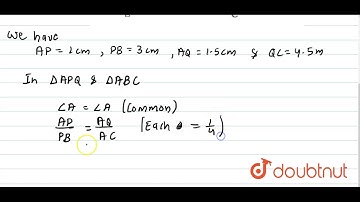 We have
AP = 1cm, PB = 3cm, AQ = 1.5cm & QC = 4.5m
In ΔAPQ & ΔABC
∠A = ∠A (Common)
AP/PB = AQ/AC [Each = 1/4)
doubtnut